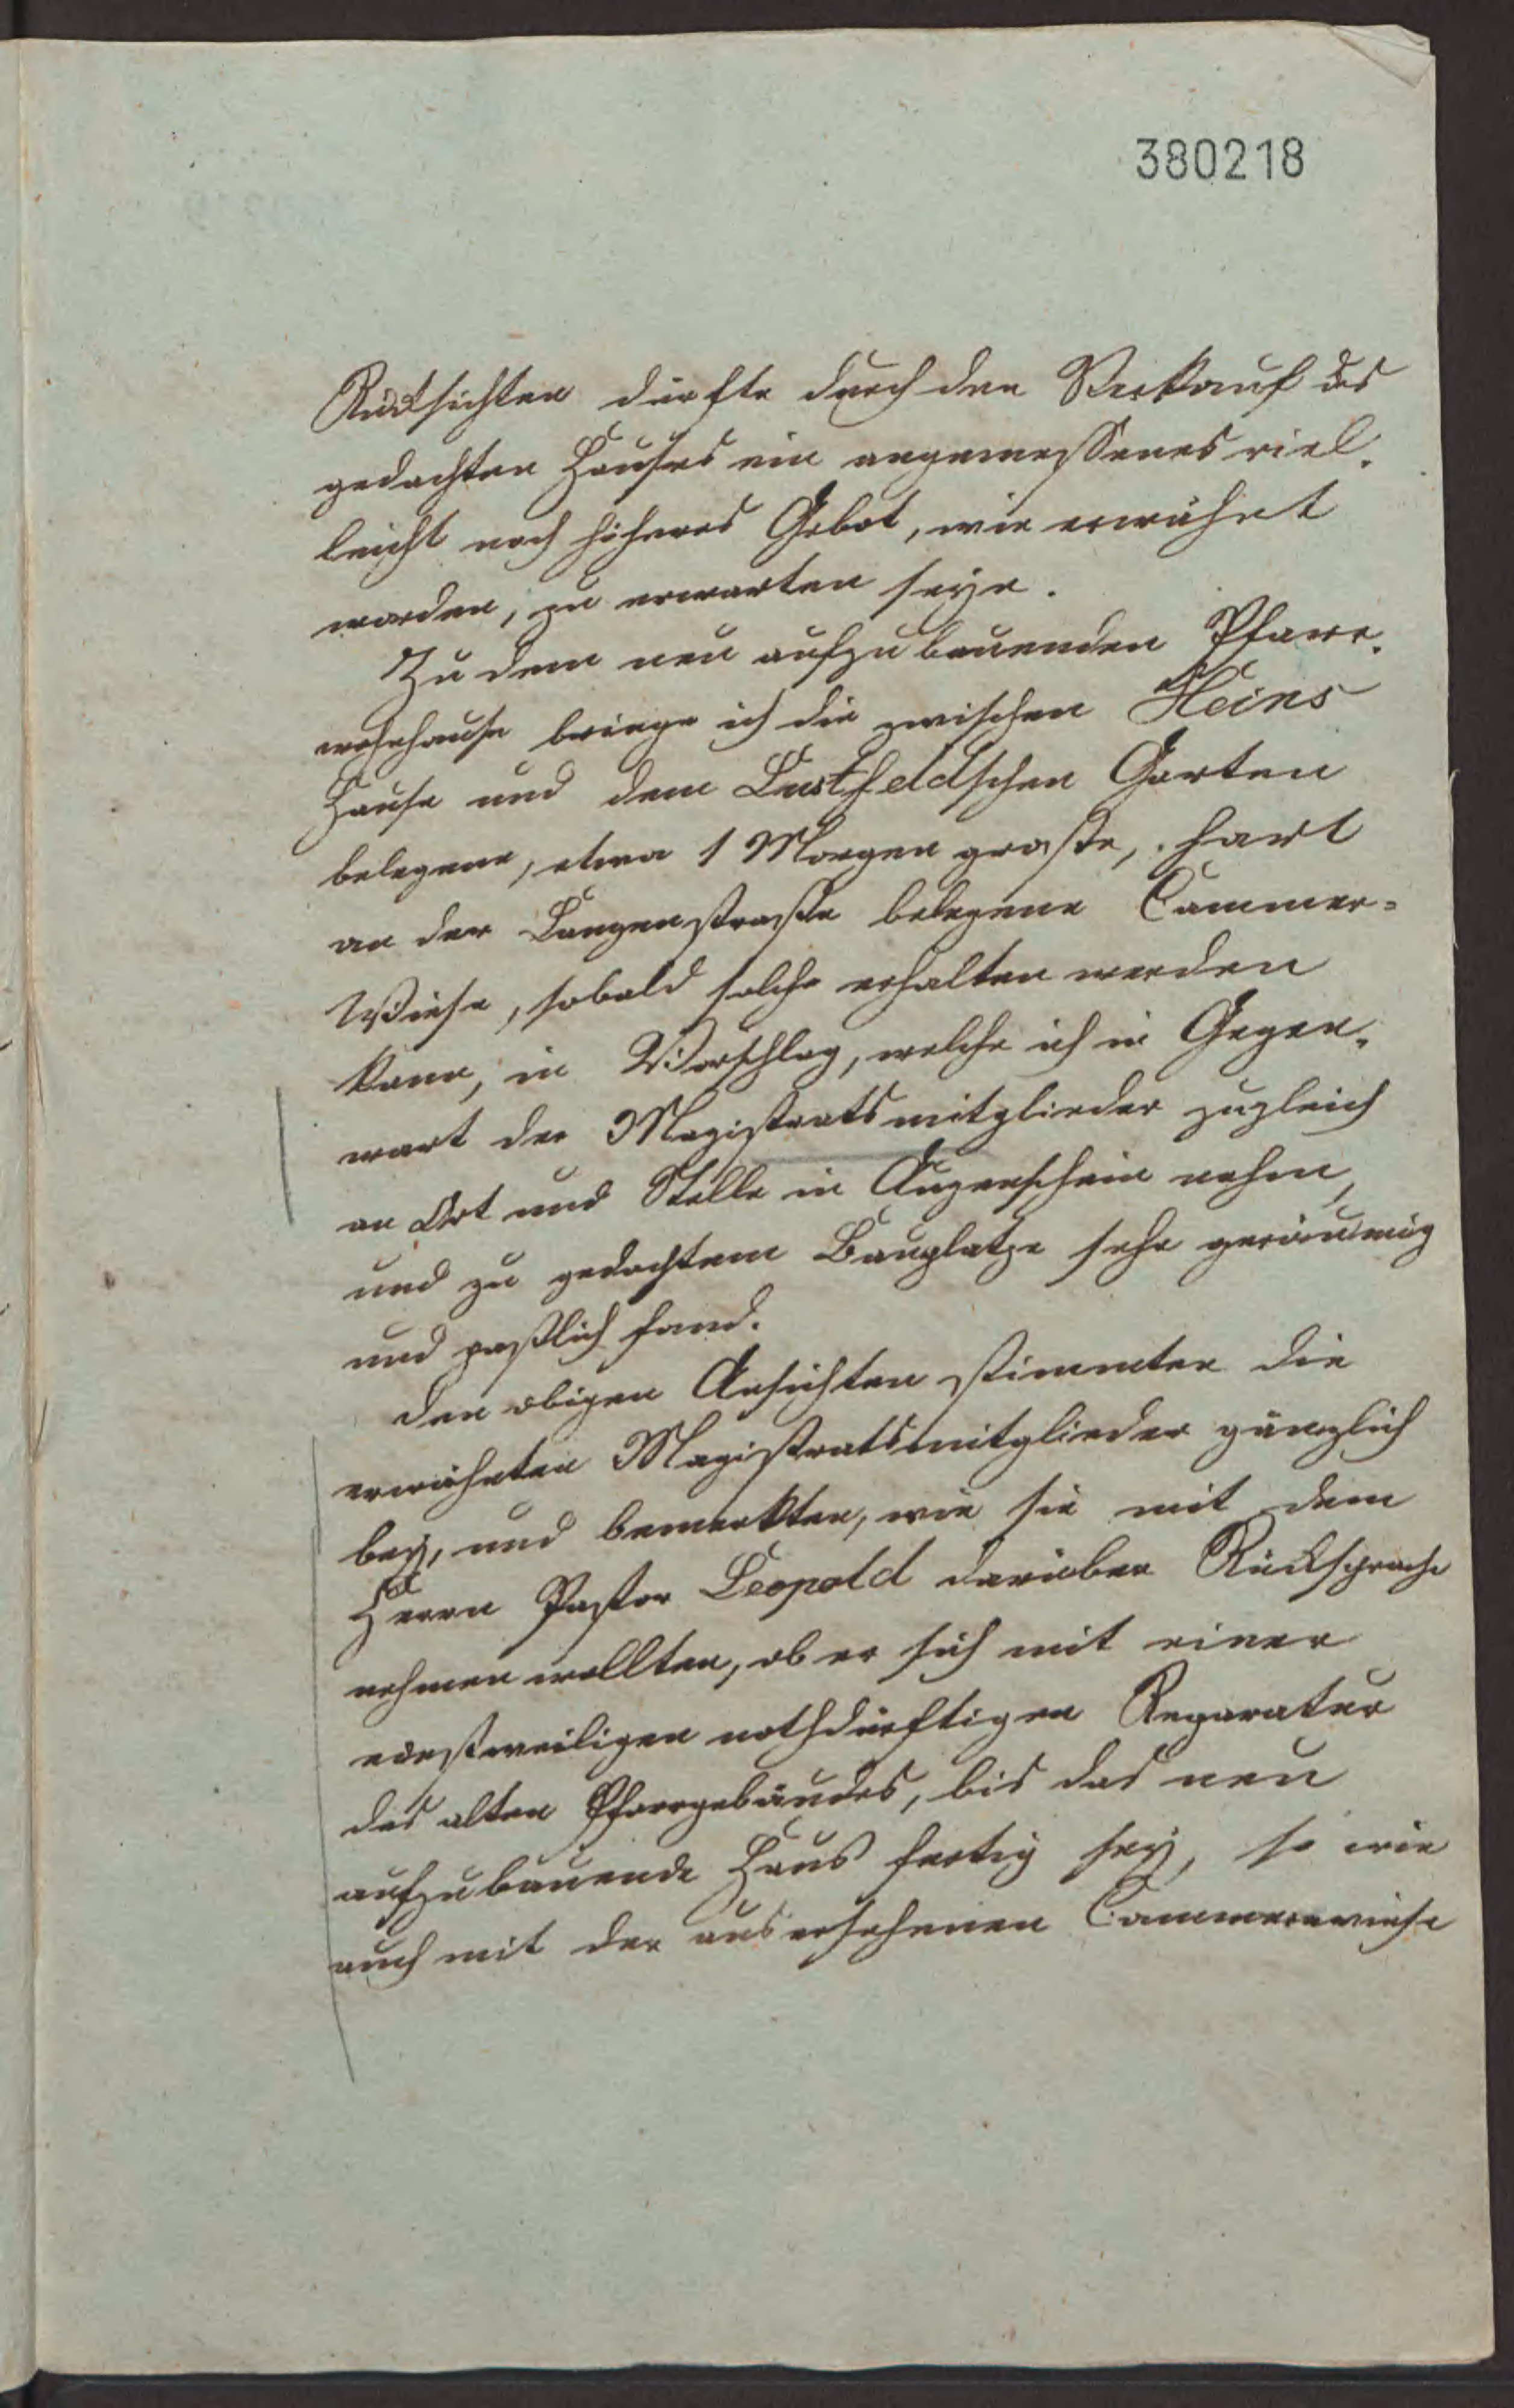 380218
Rücksichten dürfte durch den Verkauf des
gedachten Hauses ein angemessenes viel-
leicht noch höheres Gebot, wie erwähnt
worden, zu erwarten seyn.
Zu dem neu aufzubauenden Pfarr-
wohnhause bringe ich die zwischen Heins
Hause und dem Lustfeldschen Garten
belegene, etwa 1 Morgen große, hart
an der Langenstraße belegene Cammer-
Wiese, sobald solche erhalten werden
kann, in Vorschlag, welche ich in Gegen-
wart der Magistratsmitglieder zugleich
an Ort und Stelle in Augenschein nahm,
und zu gedachtem Bauplatze sehr geräumig
und paßlich fand.
Den obigen Ansichten stimmten die
erwähnten Magistratsmitglieder gänzlich
bey, und bemerkten, wie sie mit dem
Herrn Pastor Leopold darüber Rücksprache
nehmen wollten, ob er sich mit einer
einstweiligen nothdürftigen Reparatur
des alten Pfarrgebäudes, bis das neu
aufzubauende Haus fertig sey, so wie
auch mit der ausersehenen Cammerwiese